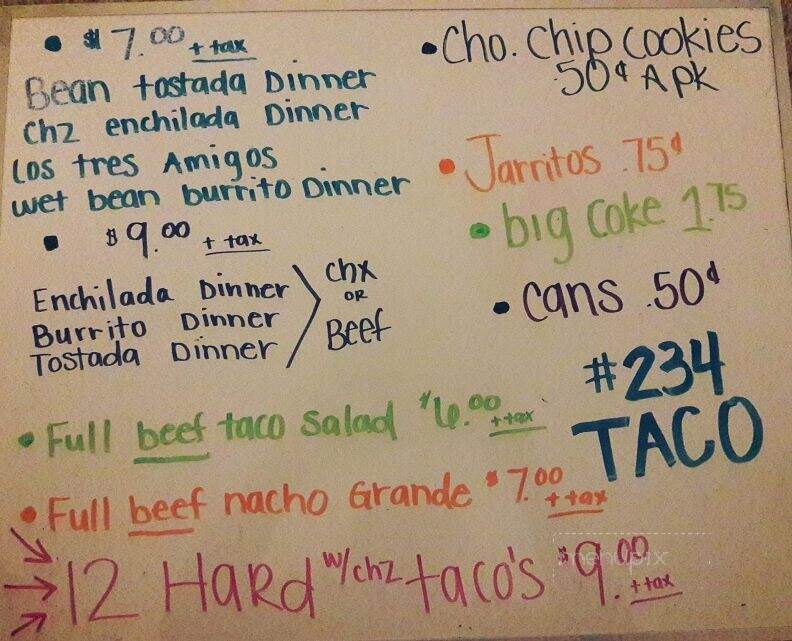 • $7.00 + tax
Bean tostada Dinner
chz enchilada Dinner
Los tres Amigos
wet bean burrito Dinner
• $9.00 + tax
Enchilada Dinner
Burrito Dinner
Tostada Dinner
chx
OR
Beef
• Cho. Chip Cookies
.50¢ A pk
• Jarritos .75¢
• big Coke 1.75
• cans .50¢
#234
TACO
• Full beef taco salad $6.00 + tax
• Full beef nacho Grande $7.00 + tax
12 Hard w/chz taco's $9.00 + tax
menupix